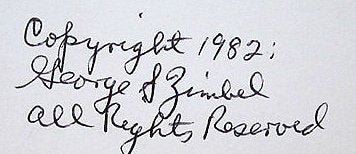 Copyright 1982;
George S Zimbel
All Rights Reserved